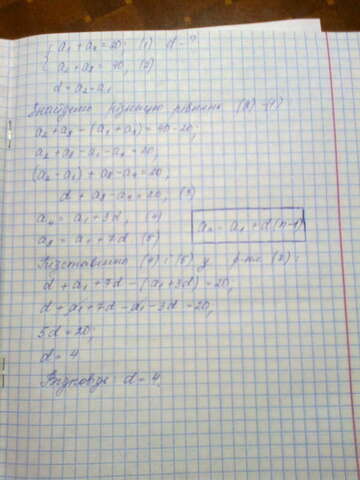 a₁ + a₄ = 20; (1) d - ?
a₂ + a₈ = 40, (2)
d = a₂ - a₁
Знайдемо різницю рівнянь (2) - (1)
a₂ + a₈ - (a₁ + a₄) = 40 - 20;
a₂ + a₈ - a₁ - a₄ = 20;
(a₂ - a₁) + a₈ - a₄ = 20;
d + a₈ - a₄ = 20, (3)
a₄ = a₁ + 3d, (4) aₙ = a₁ + d(n-1)
a₈ = a₁ + 7d (5)
Підставимо (4) і (5) у р-ня (3):
d + a₁ + 7d - (a₁ + 3d) = 20;
d + a₁ + 7d - a₁ - 3d = 20;
5d = 20;
d = 4
Відповідь: d = 4.